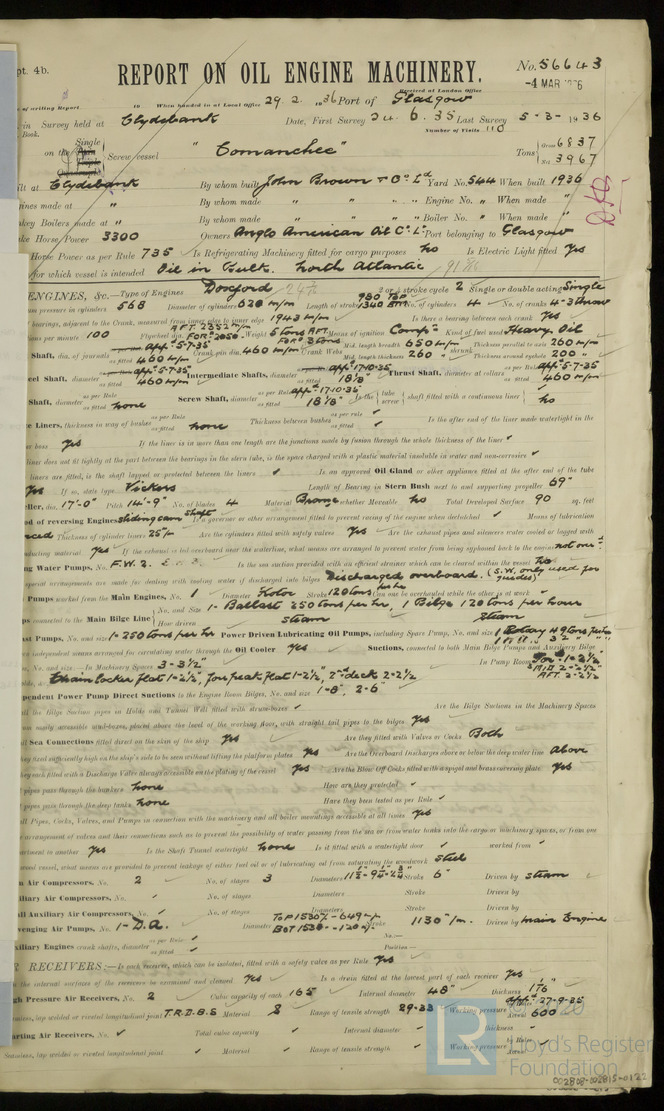 pt. 4b.
REPORT ON OIL ENGINE MACHINERY.
No. 56643
-4 MAR
Received at London Office
of writing Report 19 When handed in at Local Office 29. 2. 1936 Port of Glasgow
in Survey held at Clydebank Date, First Survey 24. 6. 35 Last Survey 5-3-1936
Book. Number of Visits 110
on the Single Screw vessel "Comanchee" Tons Gross 6837 Net 3967
ilt at Clydebank By whom built John Brown & Co. Ld Yard No. 544 When built 1936
ines made at " By whom made " " Engine No. " When made "
key Boilers made at " By whom made " " Boiler No. " When made "
ke Horse Power 3300 Owners Anglo American Oil Co. L. Port belonging to Glasgow
Horse Power as per Rule 735 Is Refrigerating Machinery fitted for cargo purposes no Is Electric Light fitted Yes
for which vessel is intended Oil in Bulk. North Atlantic
ENGINES, &c.—Type of Engines Doxford 2 or 4 stroke cycle 2 Single or double acting Single
m pressure in cylinders 568 Diameter of cylinders 620 m/m Length of stroke 980 Top 1340 BTM No. of cylinders 4 No. of cranks 4-3 throw
bearings, adjacent to the Crank, measured from inner edge to inner edge 1943 m/m Is there a bearing between each crank yes
ns per minute 100 Flywheel dia. AFT. 2352 m/m FOR'd 2050 Weight 5 tons AFT. FOR'd 3 tons Means of ignition Compn Kind of fuel used Heavy Oil
Shaft, dia. of journals as fitted 460 m/m Crank pin dia. 460 m/m Crank Webs Mid. length breadth 650 m/m Mid. length thickness 260 " shrunk Thickness parallel to axis 260 m/m Thickness around eyehole 200 "
eel Shaft, diameter as per Rule app'd 5-7-35 as fitted 460 m/m Intermediate Shafts, diameter app'd 17-10-35 as fitted 18⅛" Thrust Shaft, diameter at collars as per Rule app'd 5-7-35 as fitted 460 m/m
Shaft, diameter as per Rule as fitted none Screw Shaft, diameter as per Rule app'd 17-10-35 as fitted 18⅛" Is the tube screw shaft fitted with a continuous liner no
e Liners, thickness in way of bushes as per Rule as fitted none Thickness between bushes as per rule as fitted Is the after end of the liner made watertight in the
er boss yes If the liner is in more than one length are the junctions made by fusion through the whole thickness of the liner
liner does not fit tightly at the part between the bearings in the stern tube, is the space charged with a plastic material insoluble in water and non-corrosive
liners are fitted, is the shaft lapped or protected between the liners Is an approved Oil Gland or other appliance fitted at the after end of the tube
yes If so, state type Vickers Length of Bearing in Stern Bush next to and supporting propeller 69"
eller, dia. 17'-0" Pitch 14'-9" No. of blades 4 Material Bronze whether Moveable no Total Developed Surface 90 sq. feet
od of reversing Engines sliding cam shaft Is a governor or other arrangement fitted to prevent racing of the engine when declutched Means of lubrication
rced Thickness of cylinder liners 25 m/m Are the cylinders fitted with safety valves Yes Are the exhaust pipes and silencers water cooled or lagged with
nducting material yes If the exhaust is led overboard near the waterline, what means are arranged to prevent water from being syphoned back to the engine not over'd
ng Water Pumps, No. F.W. 2. Is the sea suction provided with an efficient strainer which can be cleared within the vessel no
special arrangements are made for dealing with cooling water if discharged into bilges Discharged overboard. (S.W. only used for guides)
Pumps worked from the Main Engines, No. 1 Diameter Rotor Stroke 120 tons per hr Can one be overhauled while the other is at work
ps connected to the Main Bilge Line No. and Size 1- Ballast 250 tons per hr, 1 Bilge 120 tons per hour
How driven steam steam
ast Pumps, No. and size 1-250 tons per hr Power Driven Lubricating Oil Pumps, including Spare Pump, No. and size
o independent means arranged for circulating water through the Oil Cooler yes Suctions, connected to both Main Bilge Pumps and Auxiliary Bilge
s, No. and size:—In Machinery Spaces 3-3½" In Pump Room For'd 1-2½"
Chain locker flat 1-2½", fore peak flat 1-2½", 2nd deck 2-2½" AFT. 2-2½
pendent Power Pump Direct Suctions to the Engine Room Bilges, No. and size 1-8", 2-6"
ll the Bilge Suction pipes in Holds and Tunnel Well fitted with strum-boxes Are the Bilge Suctions in the Machinery Spaces
om easily accessible mud-boxes, placed above the level of the working floor, with straight tail pipes to the bilges yes
ll Sea Connections fitted direct on the skin of the ship yes Are they fitted with Valves or Cocks Both
hey fixed sufficiently high on the ship's side to be seen without lifting the platform plates yes Are the Overboard Discharges above or below the deep water line above
hey each fitted with a Discharge Valve always accessible on the plating of the vessel yes Are the Blow Off Cocks fitted with a spigot and brass covering plate yes
pipes pass through the bunkers none How are they protected
pipes pass through the deep tanks none Have they been tested as per Rule
ll Pipes, Cocks, Valves, and Pumps in connection with the machinery and all boiler mountings accessible at all times yes
e arrangement of valves and their connections such as to prevent the possibility of water passing from the sea or from water tanks into the cargo or machinery spaces, or from one
rtment to another yes Is the Shaft Tunnel watertight none Is it fitted with a watertight door worked from
wood vessel, what means are provided to prevent leakage of either fuel oil or of lubricating oil from saturating the woodwork steel
n Air Compressors, No. 2 No. of stages 3 Diameters Stroke 6" Driven by steam
iliary Air Compressors, No. No. of stages Diameters Stroke Driven by
ll Auxiliary Air Compressors, No. No. of stages Diameters Stroke Driven by
venging Air Pumps, No. 1-D.A. Diameter Stroke 1130 m/m. Driven by main Engine
xiliary Engines crank shafts, diameter as per Rule as fitted No.— Position—
R RECEIVERS:—Is each receiver, which can be isolated, fitted with a safety valve as per Rule yes
n the internal surfaces of the receivers be examined and cleaned yes Is a drain fitted at the lowest part of each receiver yes
gh Pressure Air Receivers, No. 2 Cubic capacity of each 165 Internal diameter 48" thickness
less, lap welded or riveted longitudinal joint T.R.D.B.S Material S Range of tensile strength 29-33 Working pressure app'd 27-9-35 Actual 600
arting Air Receivers, No. Total cubic capacity Internal diameter thickness
Seamless, lap welded or riveted longitudinal joint Material Range of tensile strength Working pressure by Rules Actual
LR
Lloyd's Register
Foundation
002808-002815-0122